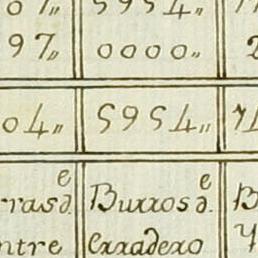 07„ 59654„
97„ 0000„
04„ 59654„
rras d.e Burros d.e B
ntre Erradero Y